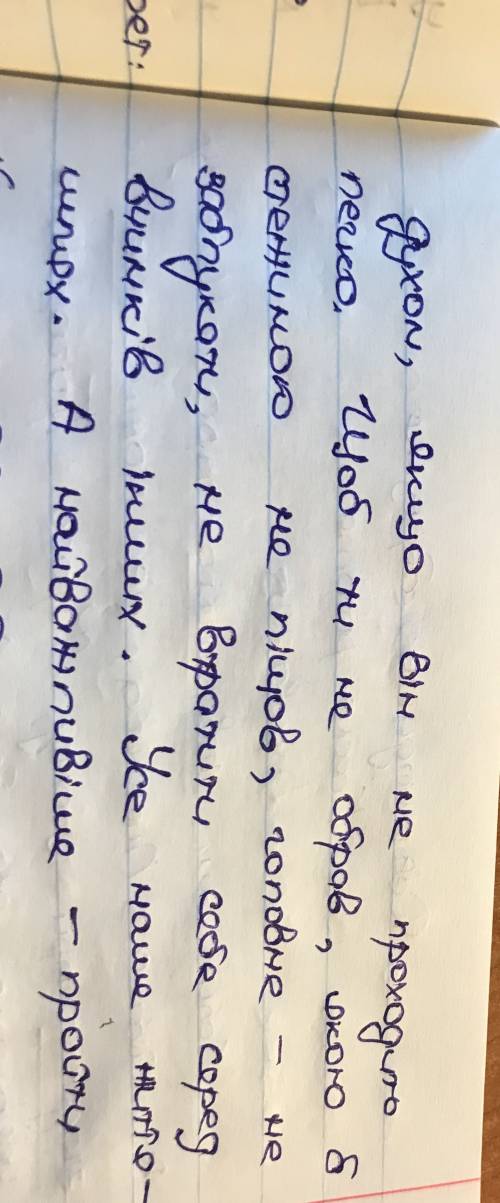 рет:
духом, якщо він не проходить
легко. Щоб ти не обрав, якою б
стежиною не пішов, головне – не
заблукати, не втратити себе серед
вчинків інших. Усе наше життя –
шлях. А найважливіше – пройти